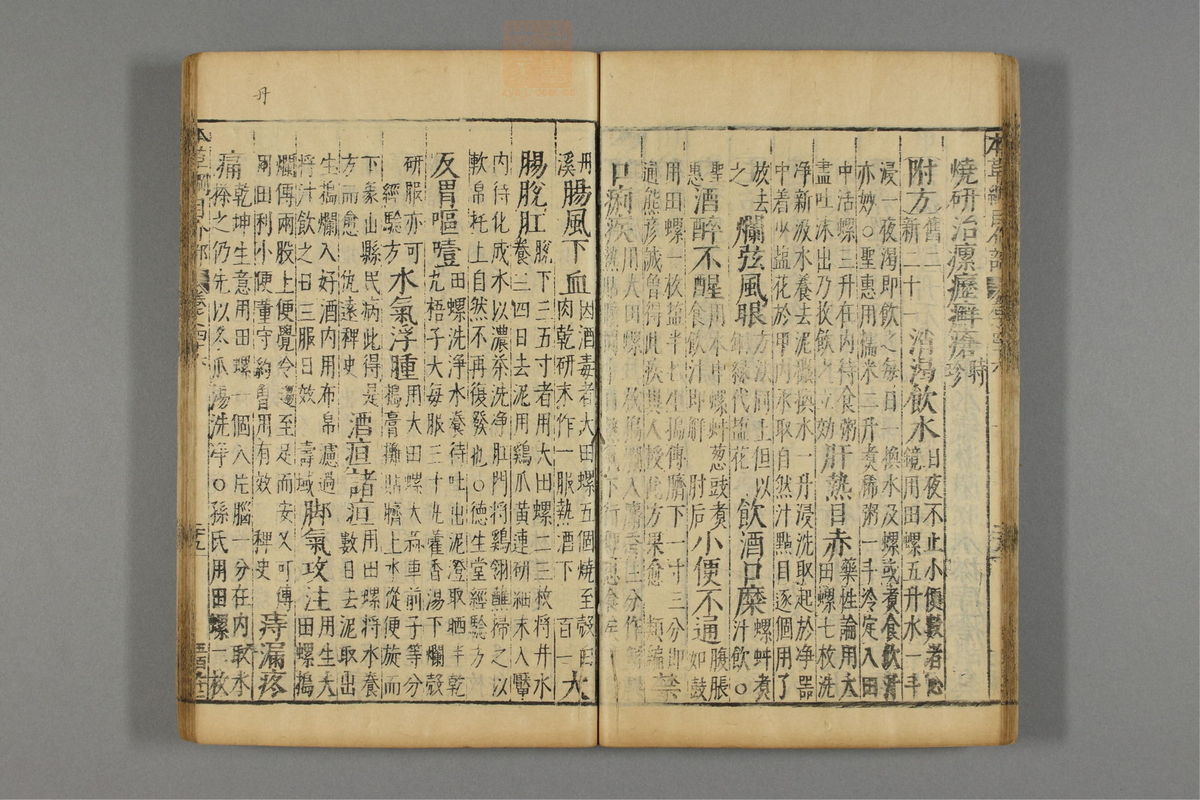 本草綱目介部
燒研治瘰癧癬瘡時珍
附方舊二新二十一 消渴飲水日夜不止小便數者心鏡用田螺五升水一斗
浸一夜渴即飲之每日一換水及螺或煮食飲汁
亦妙○聖惠用糯米二升煮稀粥一斗冷定入田
中活螺三升在內待食粥
盡吐沫出乃收飲之立効 肝熱目赤藥性論用大田螺七枚洗
淨新汲水養去泥穢換水一升浸洗取起於淨器
中着少鹽花於甲內承取自然汁點目逐個用了
放去之 爛弦風眼方法同上但以銅綠代鹽花 飲酒口糜螺蚌煮汁飲○
聖惠 酒醉不醒用水中螺蚌葱豉煮食飲汁即解 肘后 小便不通腹脹如鼓
用田螺一枚鹽半匕生搗傅臍下一寸三分即
通熊彥誠曾得此疾異人授此方果愈 類編 禁
口痢疾用大田螺二枚搗爛入麝香三分作餅烘熱貼臍間半日熱氣下行即思食矣
丹溪 腸風下血因酒毒者大田螺五個燒至殼白肉乾研末作一服熱酒下 百一 大
腸脫肛脫下三五寸者用大田螺二三枚將井水養三四日去泥用雞爪黃連研細末入靨
內待化成水以濃茶洗淨肛門將雞翎蘸掃之以
軟帛托上自然不再復發也○德生堂經驗方
反胃嘔噎田螺洗淨水養待吐出泥澄取晒半乾丸梧子大每服三十丸藿香湯下爛殼
研服亦可 經驗方 水氣浮腫用大田螺大蒜車前子等分搗膏攤貼臍上水從便旋而
下象山縣民病此得是
方而愈 仇遠稗史 酒疸諸疸用田螺將水養數日去泥取出
生搗爛入好酒內用布帛濾過
將汁飲之日三服日效 壽域 脚氣攻注用生大田螺搗
爛傅兩股上便覺冷趨至足而安又可傅
丹田利小便董守約曾用有效 稗史 痔漏疼
痛乾坤生意用田螺一個入片腦一分在內取水搽之仍先以冬瓜湯洗淨○孫氏用田螺一枚
本草綱目介部
丹